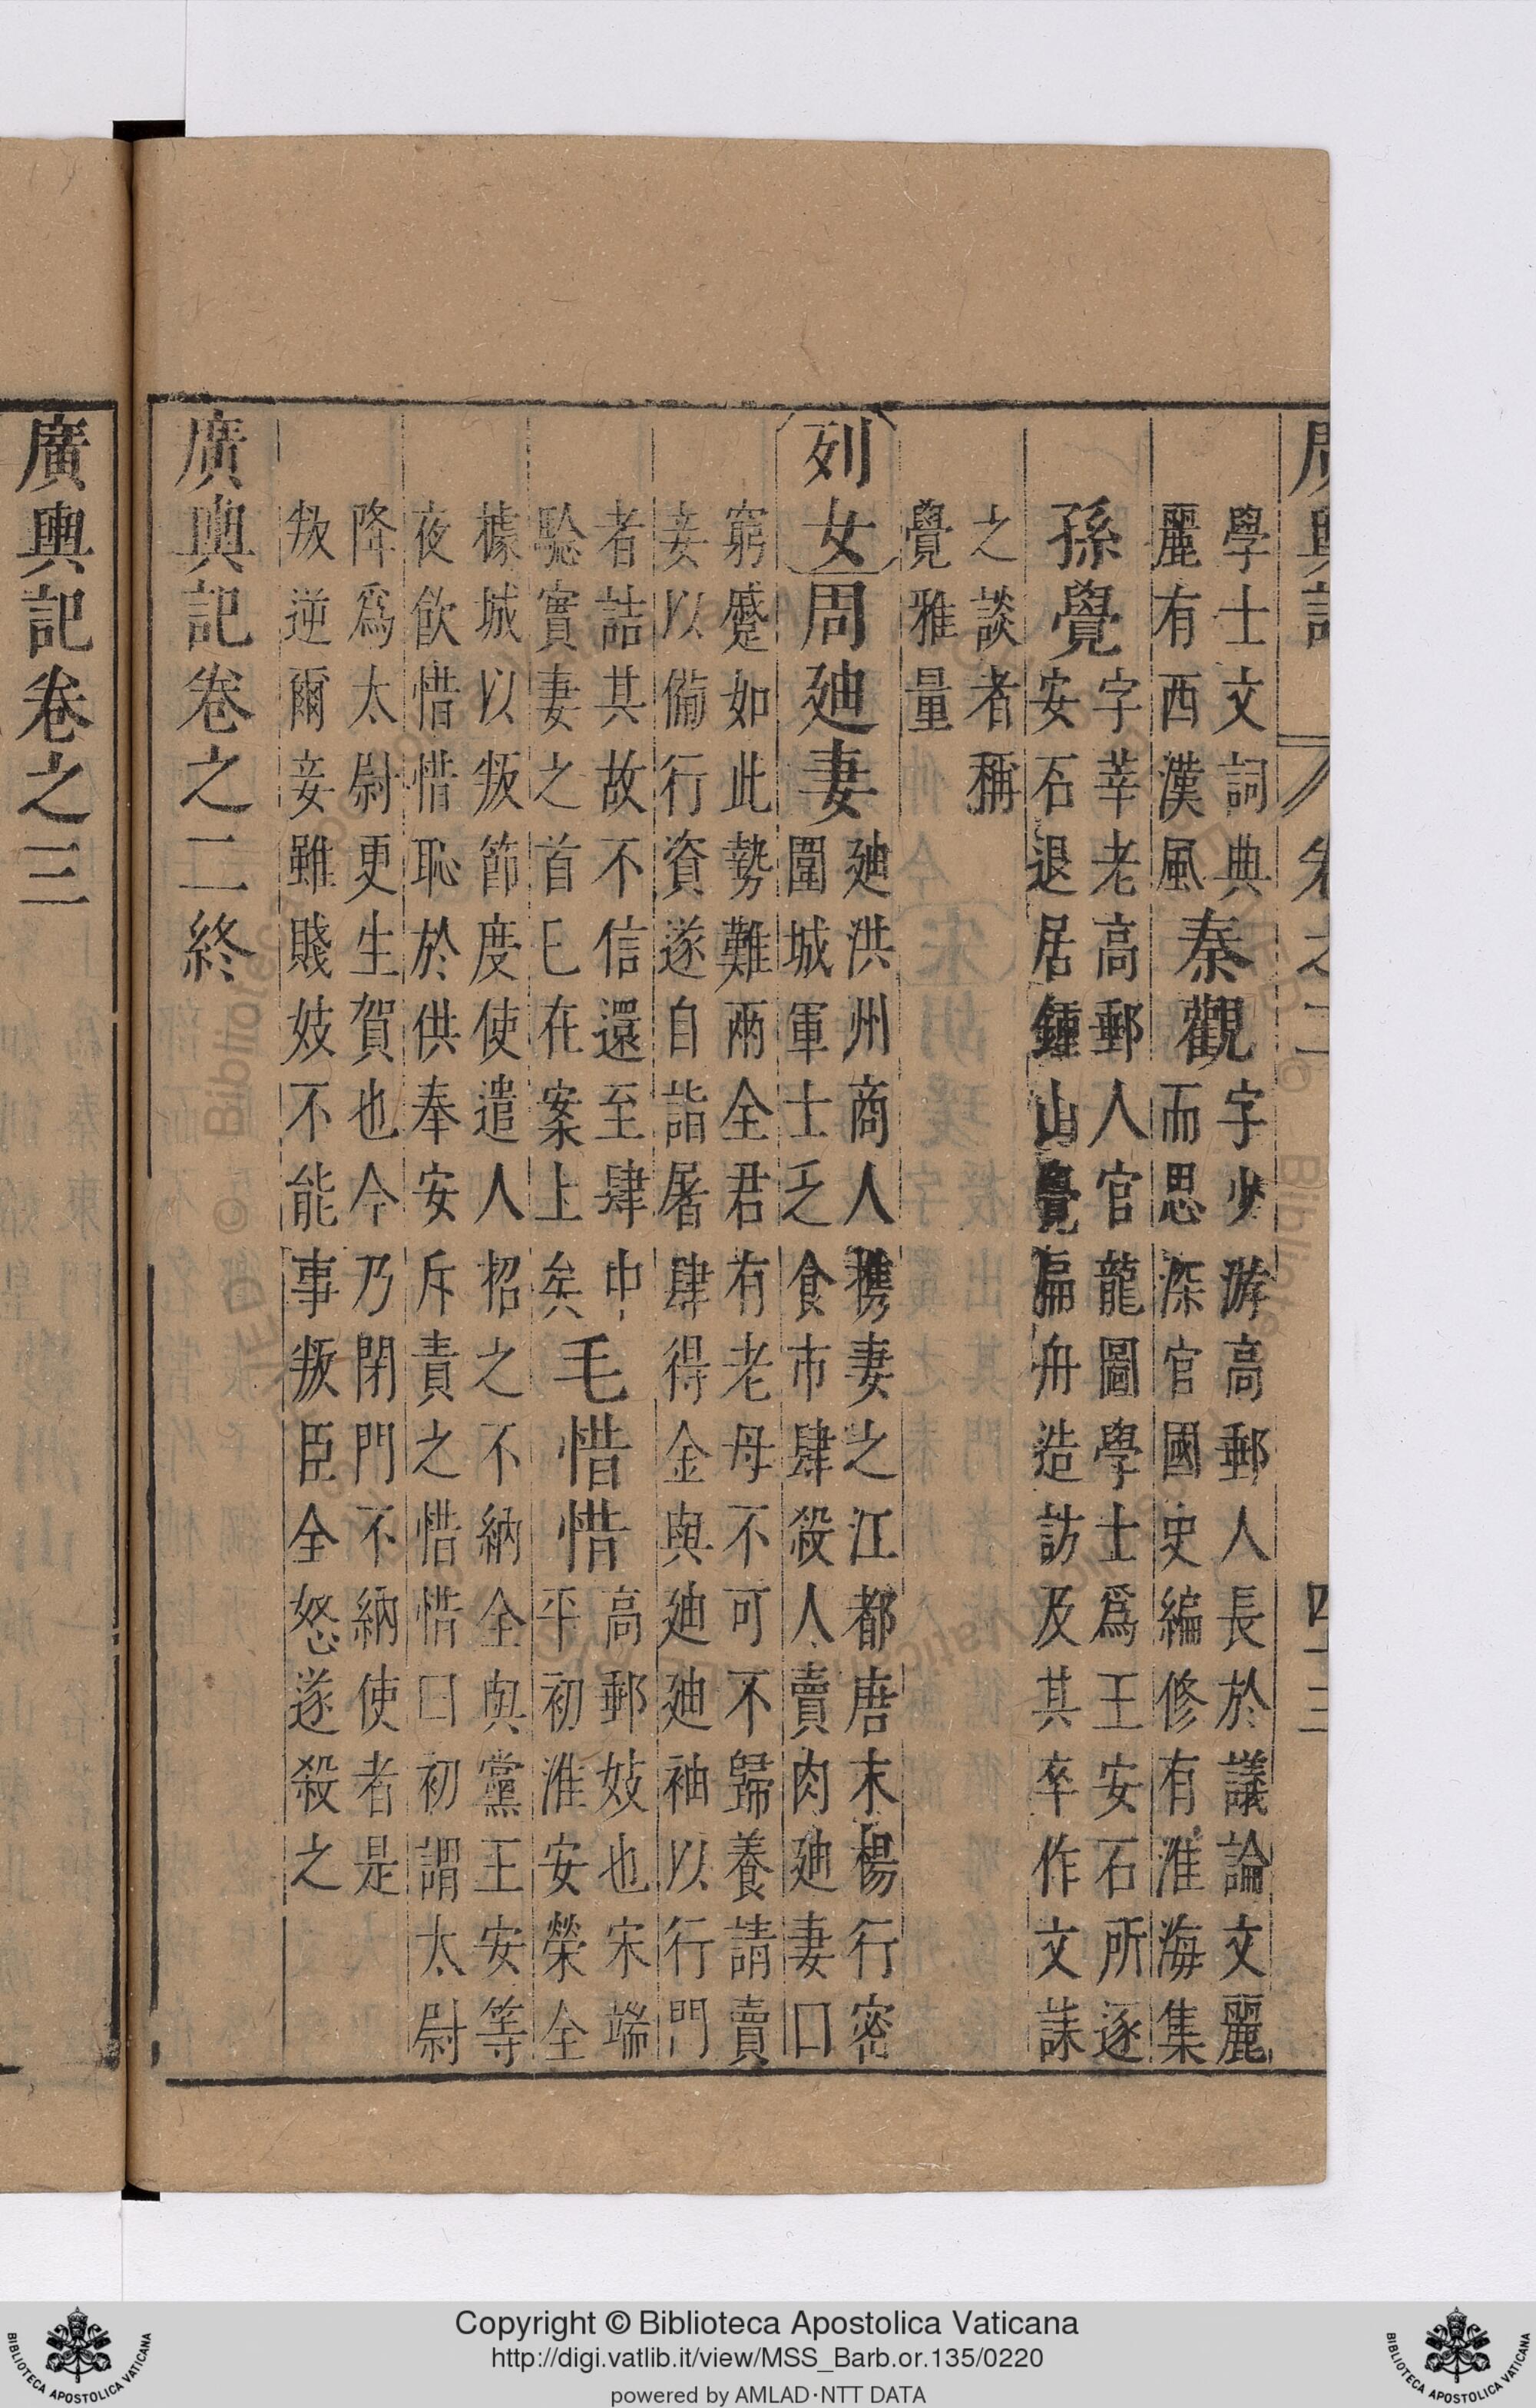 廣輿記 卷之二 四十三
學士文詞典
麗有西漢風
秦觀
字少游高郵人長於議論文麗
而思深官國史編修有淮海集
孫覺
字莘老高郵人官龍圖學士爲王安石所逐
安石退居鍾山覺扁舟造訪及其卒作文誄
之談者稱
覺雅量
列女
周廸妻
廸洪州商人攜妻之江都唐末楊行密
圍城軍士乏食市肆殺人賣肉廸妻口
窮蹙如此勢難兩全君有老母不可不歸養請賣
妾以備行資遂自詣屠肆得金與廸廸袖以行門
者詰其故不信還至肆中
騐實妻之首已在案上矣
毛惜惜
高郵妓也宋端
平初淮安榮全
據城以叛節度使遣人招之不納全與黨王安等
夜飲惜惜恥於供奉安斥責之惜惜曰初謂太尉
降爲太尉更生賀也今乃閉門不納使者是
叛逆爾妾雖賤妓不能事叛臣全怒遂殺之
廣輿記卷之二終
廣輿記卷之三
Copyright © Biblioteca Apostolica Vaticana
http://digi.vatlib.it/view/MSS_Barb.or.135/0220
powered by AMLAD·NTT DATA
BIBLIOTECA APOSTOLICA VATICANA
BIBLIOTECA APOSTOLICA VATICANA